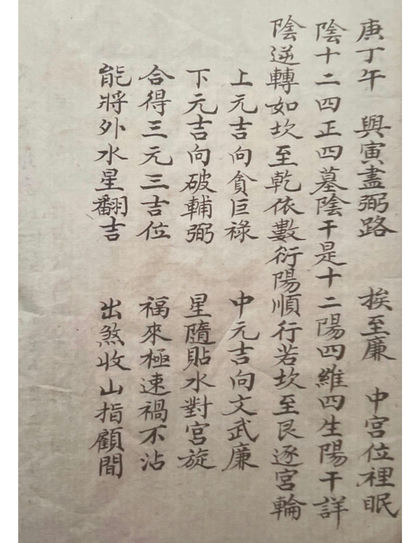 庚丁午 與寅盡弼路 挨至廉 中宮位裡眠
陰十二四正四墓陰干是十二陽四維四生陽干詳
陰逆轉如坎至乾依數衍陽順行若坎至艮逐宮輪
上元吉向貪巨祿 中元吉向文武廉
下元吉向破輔弼 星隨貼水對宮旋
合得三元三吉位 福來極速禍不沾
能將外水星翻吉 出煞收山指顧間